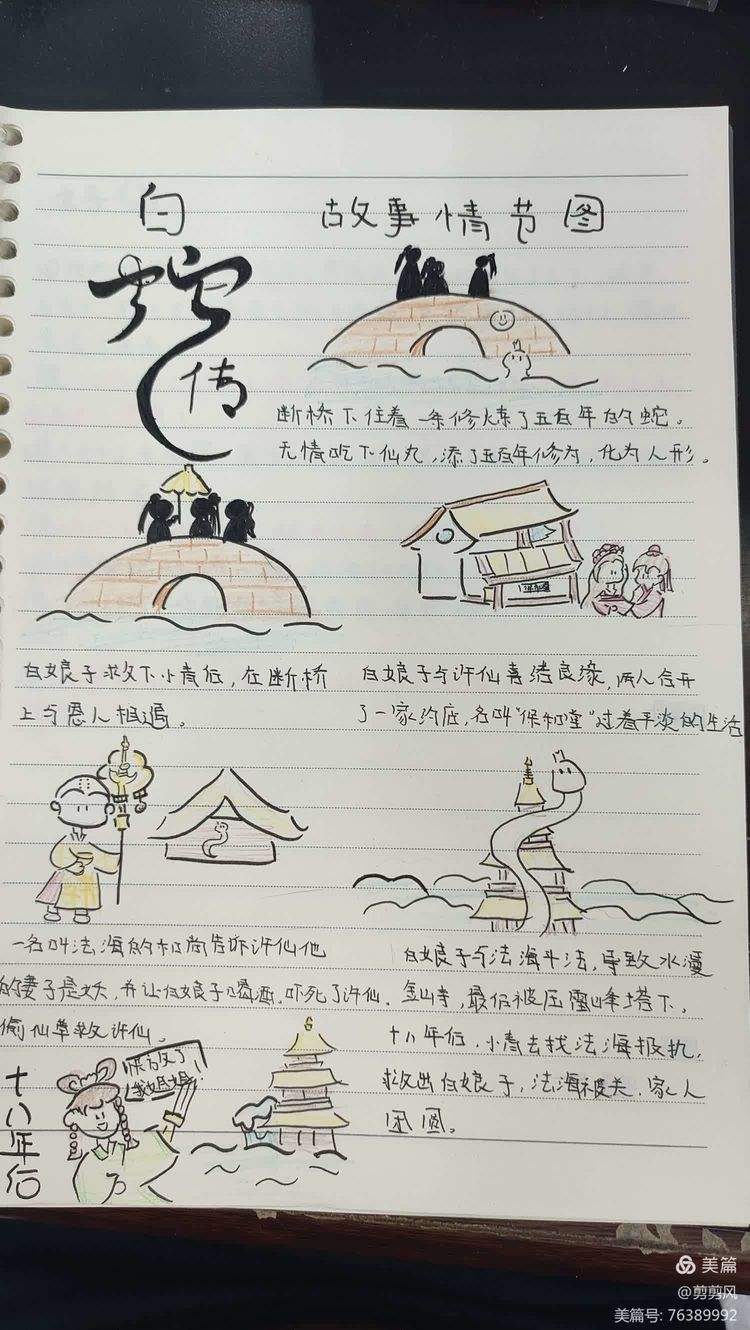 白
蛇
传
故事情节图
断桥下住着一条修炼了五百年的蛇。
无情吃下仙丸，添了五百年修为，化为人形。
白娘子救下小青后，在断桥
上与恩人相遇。
白娘子与许仙喜结良缘，两人合开
了一家药店，名叫“保和堂”过着平淡的生活
一名叫法海的和尚告诉许仙他
的妻子是妖，并让白娘子喝酒，吓死了许仙。
偷仙草救许仙。
白娘子与法海斗法，导致水漫
金山寺，最后被压雷峰塔下。
十八年后，小青去找法海报仇，
救出白娘子，法海被关，家人
团圆。
十八年后
美篇
@剪剪风
美篇号: 76389992